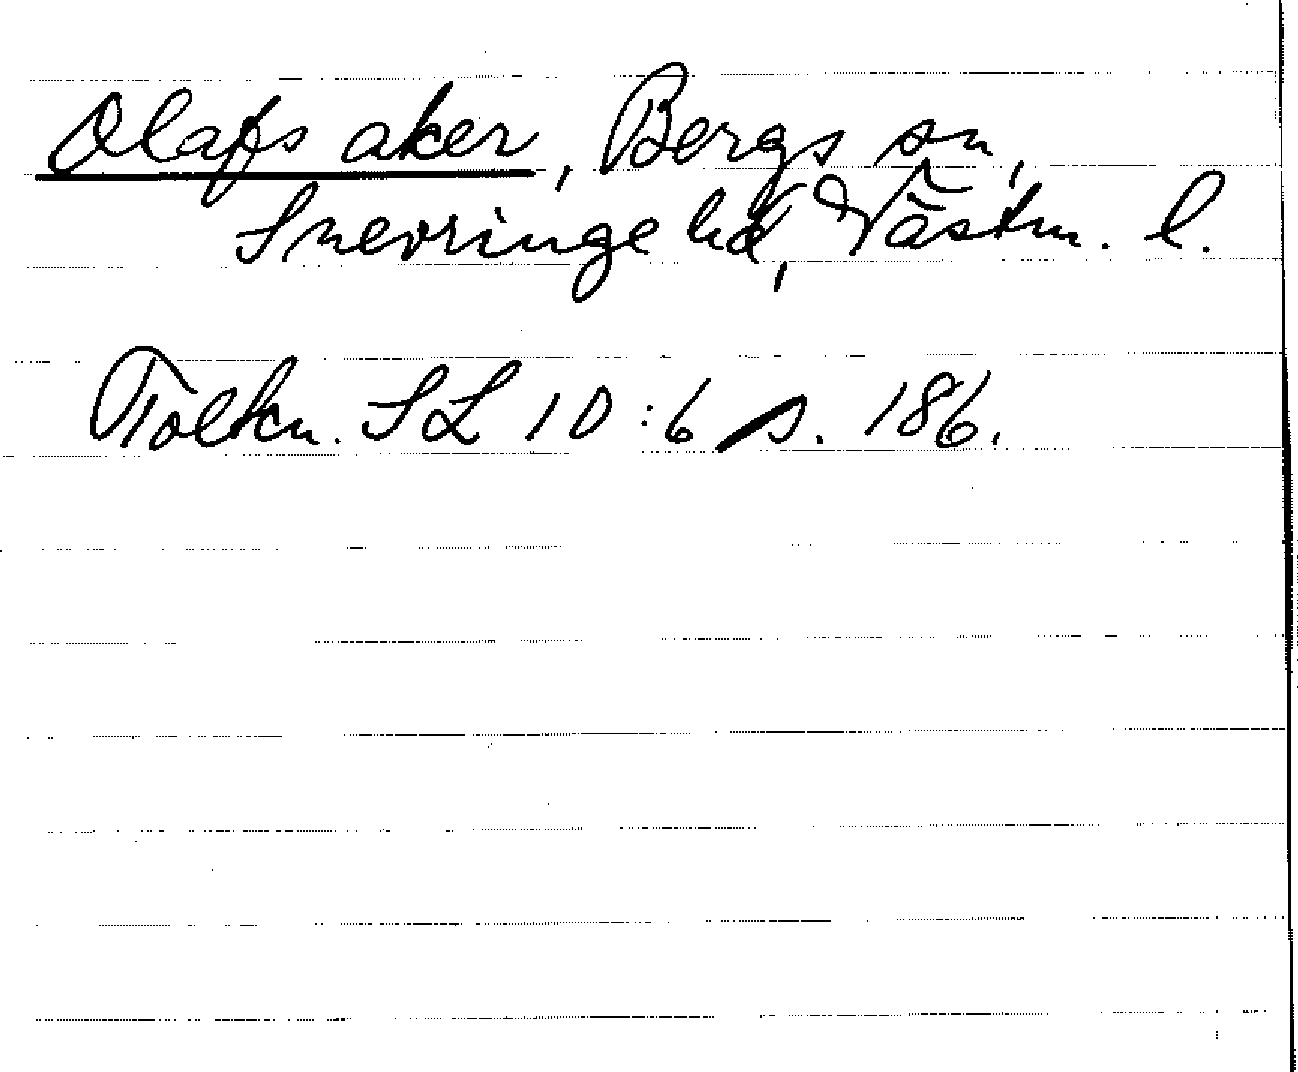 Olafs aker, Bergs sn,
Snevringe hd, Västm. l.
Tolkn. SL 10:6 s. 186.